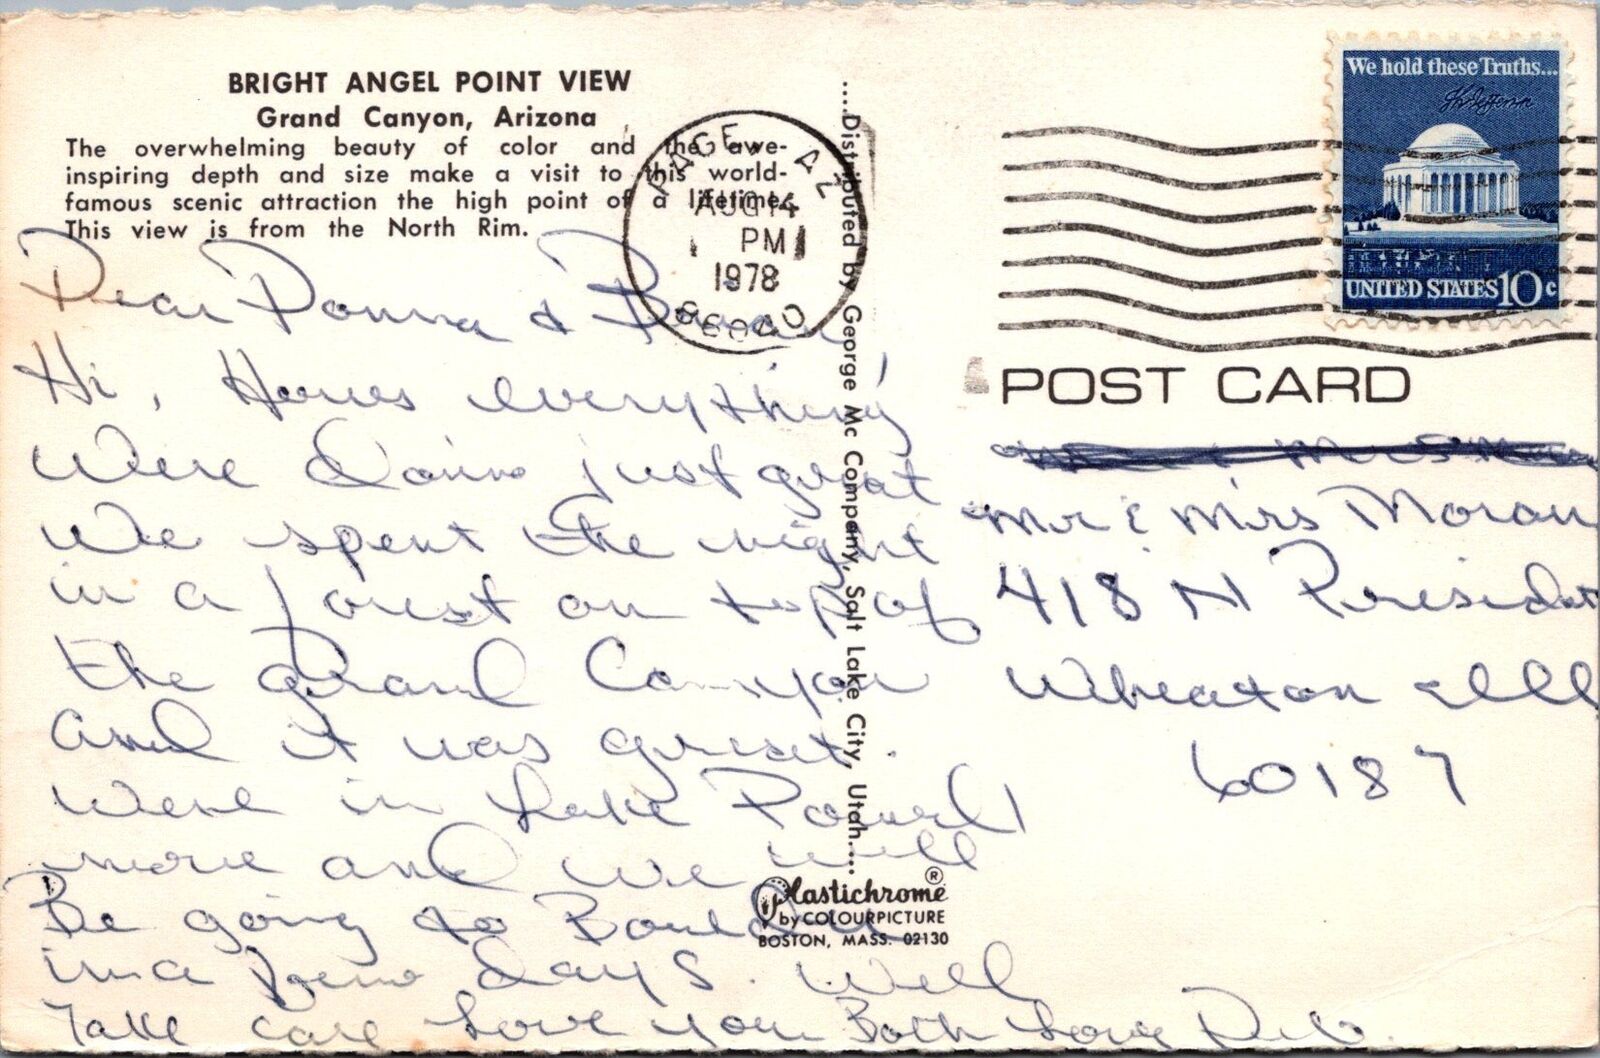 BRIGHT ANGEL POINT VIEW
Grand Canyon, Arizona
The overwhelming beauty of color and the awe-
inspiring depth and size make a visit to this world-
famous scenic attraction the high point of a lifetime.
This view is from the North Rim.
Dear Donna &
Hi, Hows everything
Were doing just great
We spent the night
in a forest on top of
the Grand Canyon
and it was great.
Were in Lake Powell
more and we will
Be going to Boulder
in a few days. Well
Take care Love you Both Love Deb.
....Distributed by George Mc Company, Salt Lake City, Utah....
Plastichrome®
by COLOURPICTURE
BOSTON, MASS. 02130
PAGE, AZ
AUG 14
PM
1978
86040
We hold these Truths...
Th Jefferson
UNITED STATES 10c
POST CARD
Mr & Mrs Moran
418 N President
Wheaton Illl
60187